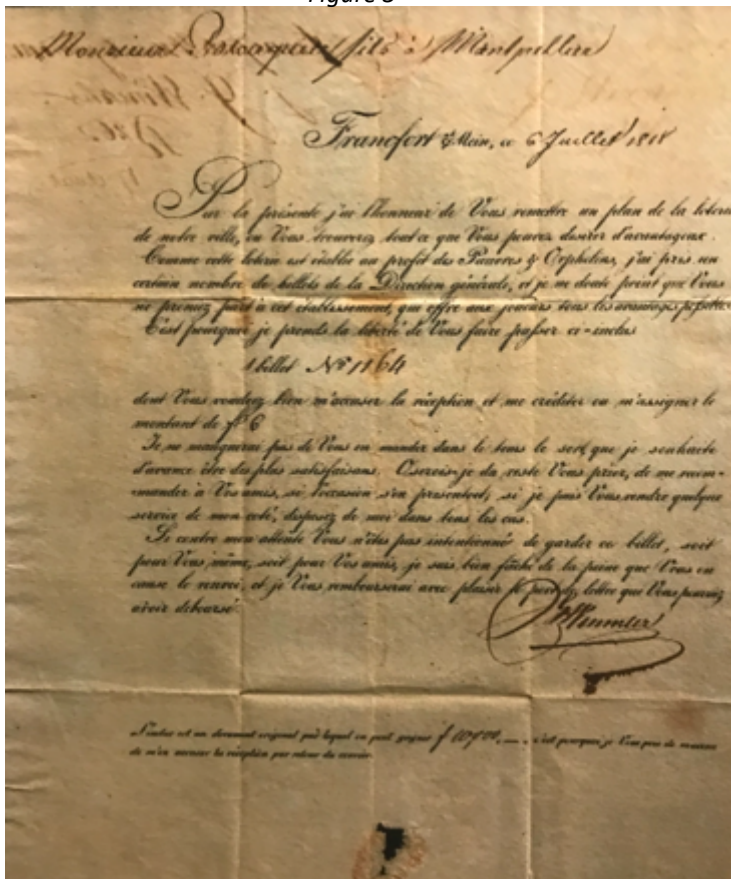 Figure 3
Monsieur fils à Montpellier
Francfort s/Mein, ce 6 Juillet 1818
Par la présente j'ai l'honneur de Vous remettre un plan de la loterie
de notre ville, ou Vous trouverez tout ce que Vous pouvez desirer d'avantageux.
Comme cette loterie est établie au profit des Pauvres & Orphelins, j'ai pris un
certain nombre de billets de la Direction générale, et je ne doute point que Vous
ne preniez part à cet établissement, qui offre aux joueurs tous les avantages possibles
C'est pourquoi je prends la liberté de Vous faire passer ci-inclus
1 billet No 1164
dont Vous voudrez bien m'accuser la réception et me créditer ou m'assigner le
montant de f 6
Je ne manquerai pas de Vous en mander dans le tems le sort, que je souhaite
d'avance être des plus satisfaisans. Oserois-je du reste Vous prier, de me recom-
mander à Vos amis, si l'occasion s'en présentoit, si je puis Vous rendre quelque
service de mon coté, disposez de moi dans tous les cas.
Si contre mon attente Vous n'étes pas intentionné de garder ce billet, soit
pour Vous même, soit pour Vos amis, je suis bien fâché de la peine que Vous en
cause le renvoi, et je Vous rembourserai avec plaisir le port de lettre que Vous pourriez
avoir deboursé.
L'inclus est un document original par lequel on peut gagner f c'est pourquoi je Vous prie de
de m'en accuser la réception par retour du courier.